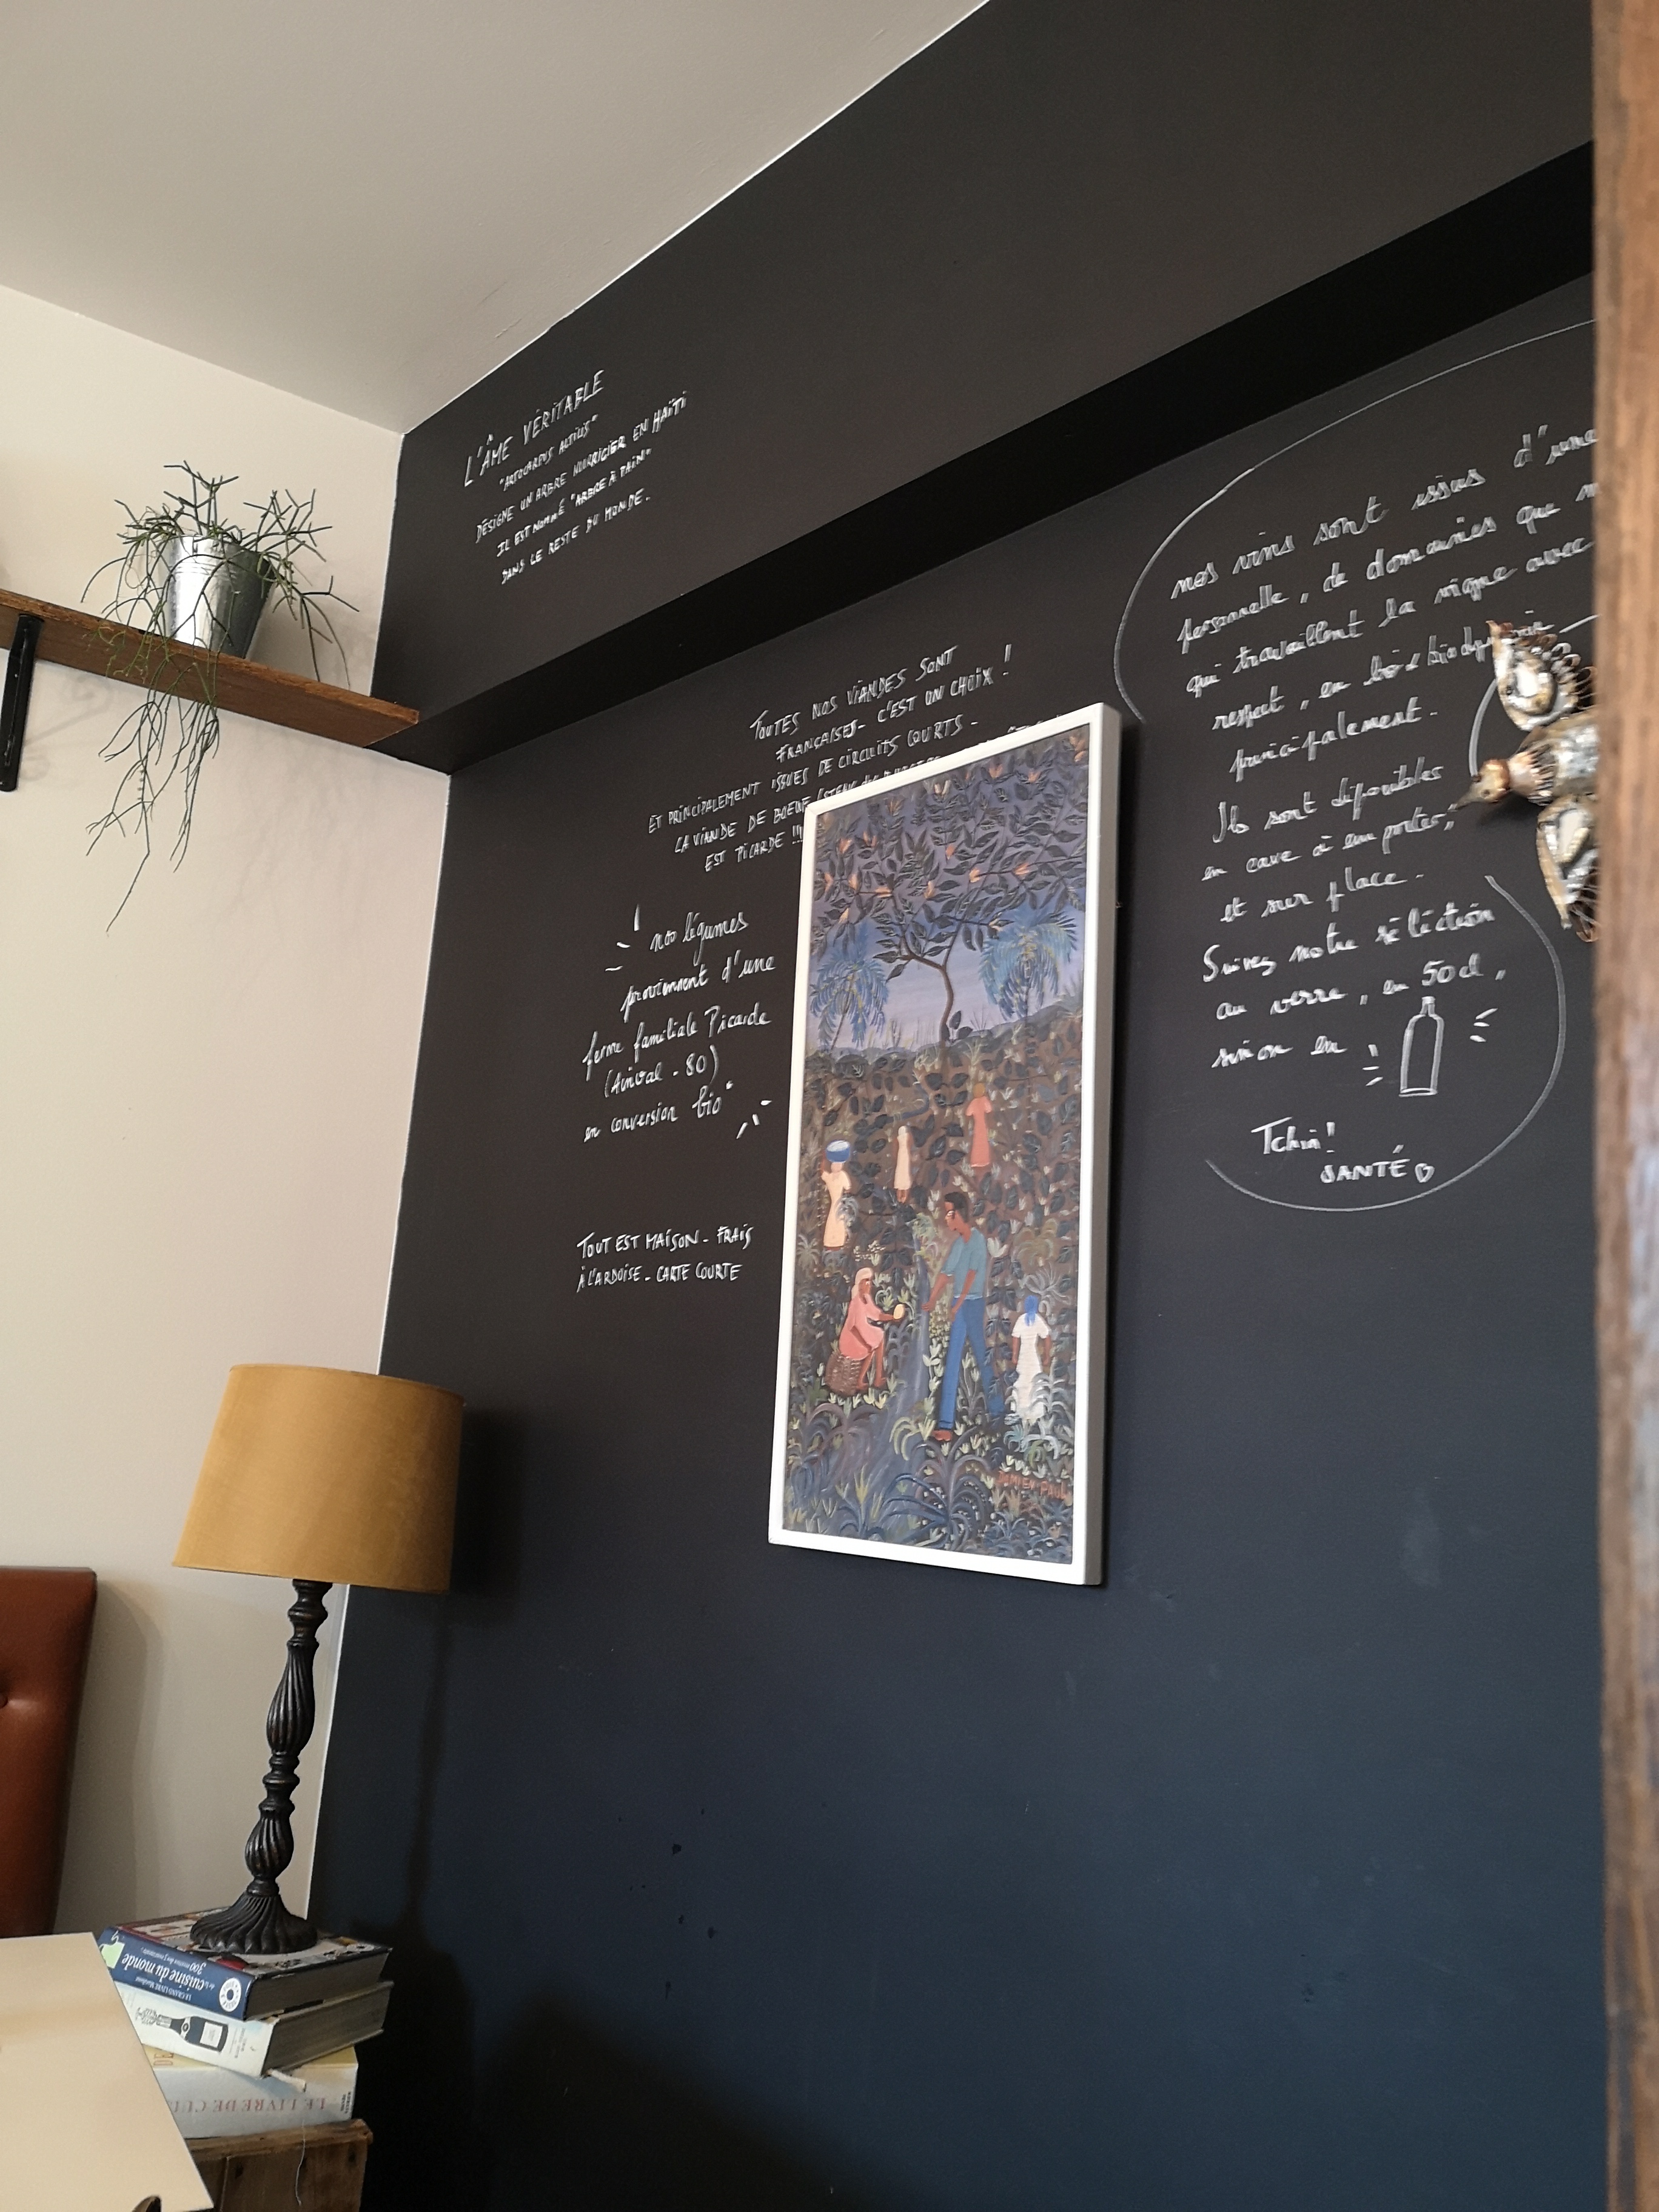 L'ÂME VÉRITABLE
"ARTOCARPUS ALTILIS"
DÉSIGNE UN ARBRE NOURRICIER EN HAÏTI
IL EST NOMMÉ "ARBRE À PAIN"
DANS LE RESTE DU MONDE.
TOUTES NOS VIANDES SONT
FRANÇAISES - C'EST UN CHOIX !
ET PRINCIPALEMENT ISSUES DE CIRCUITS COURTS -
LA VIANDE DE BOEUF
EST PICARDE !!!
nos légumes
proviennent d'une
ferme familiale Picarde
(Ainval - 80)
en conversion bio"
TOUT EST MAISON - FRAIS
À L'ARDOISE - CARTE COURTE
nos vins sont issus d'une
personnelle, de domaines que
qui travaillent la vigne avec
respect, en bio & biodynamie
principalement.
Ils sont disponibles
en cave "à emporter,"
et sur place.
Suivez notre séléction
au verre, en 50cl,
sinon en
Tchin!
SANTÉ
DAMIEN PAUL
LE GRAND LIVRE Marabout
de la cuisine du monde
300
LE LIVRE DE CUI